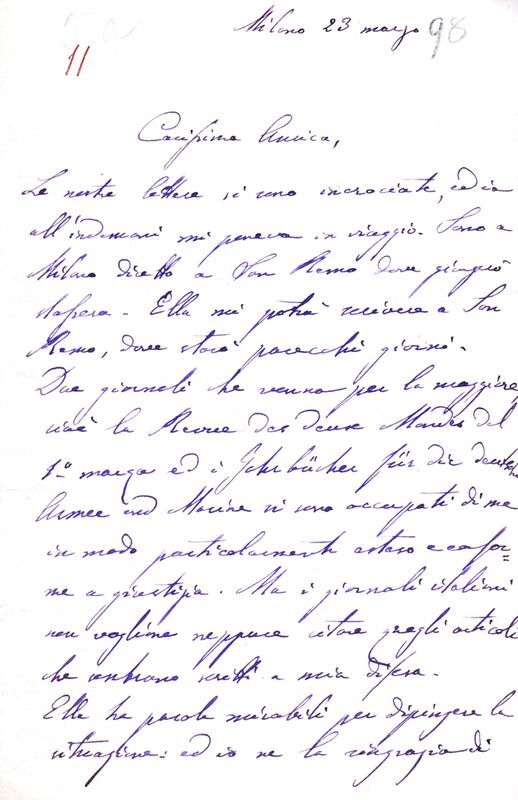 Milano 23 marzo 98
11
Carissima Amica,
Le nostre lettere si sono incrociate, ed io
all'indomani mi poneva in viaggio. Sono a
Milano diretto a San Remo dove giungerò
stassera. Ella mi potrà scrivere a San
Remo, dove starò parecchi giorni.
Due giornali che vanno per la maggiore,
cioè la Revue des deux Mondes del
1º marzo ed i Jahrbücher für die deutsche
Armee und Marine si sono occupati di me
in modo particolarmente esteso e confor=
me a giustizia. Ma i giornali italiani
non vogliono neppure citare quegli articoli
che sembrano scritti a mia difesa.
Ella ha parole mirabili per dipingere la
situazione: ed io ne la ringrazio di